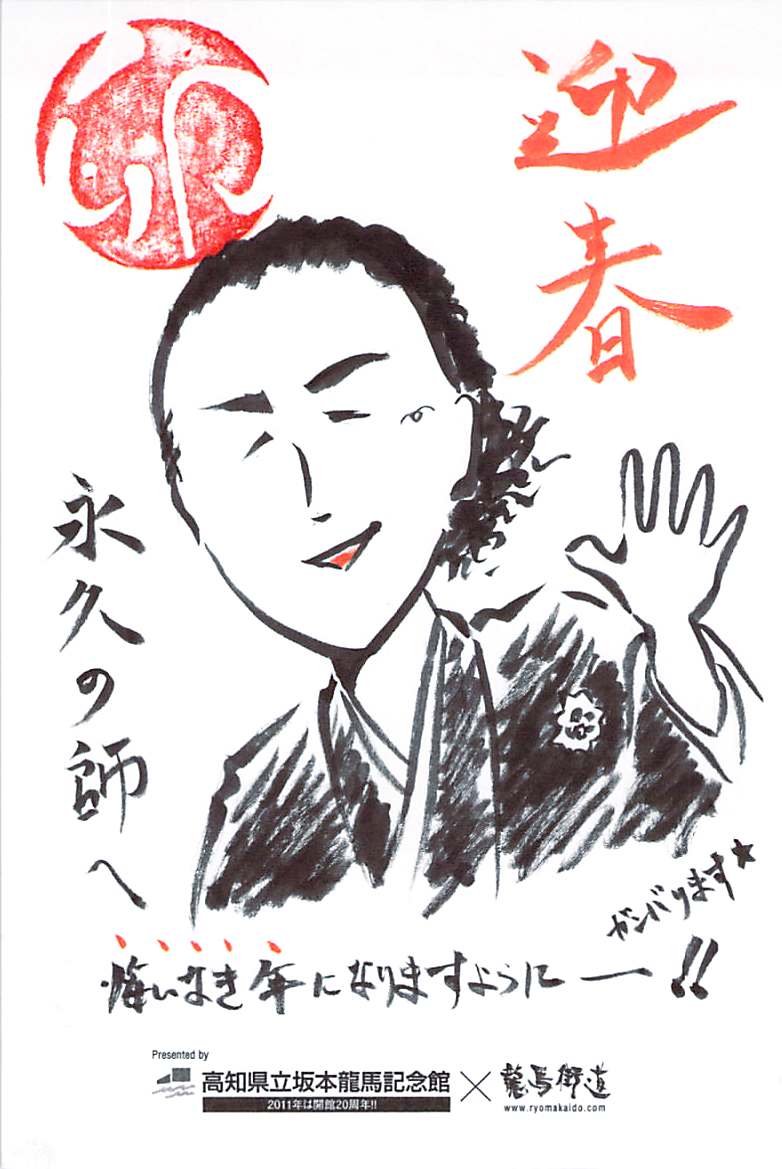 卯
迎春
永久の師へ
ガンバります★
悔いなき年になりますようにー!!
Presented by
高知県立坂本龍馬記念館×龍馬街道
2011年は開館20周年!!
www.ryomakaido.com